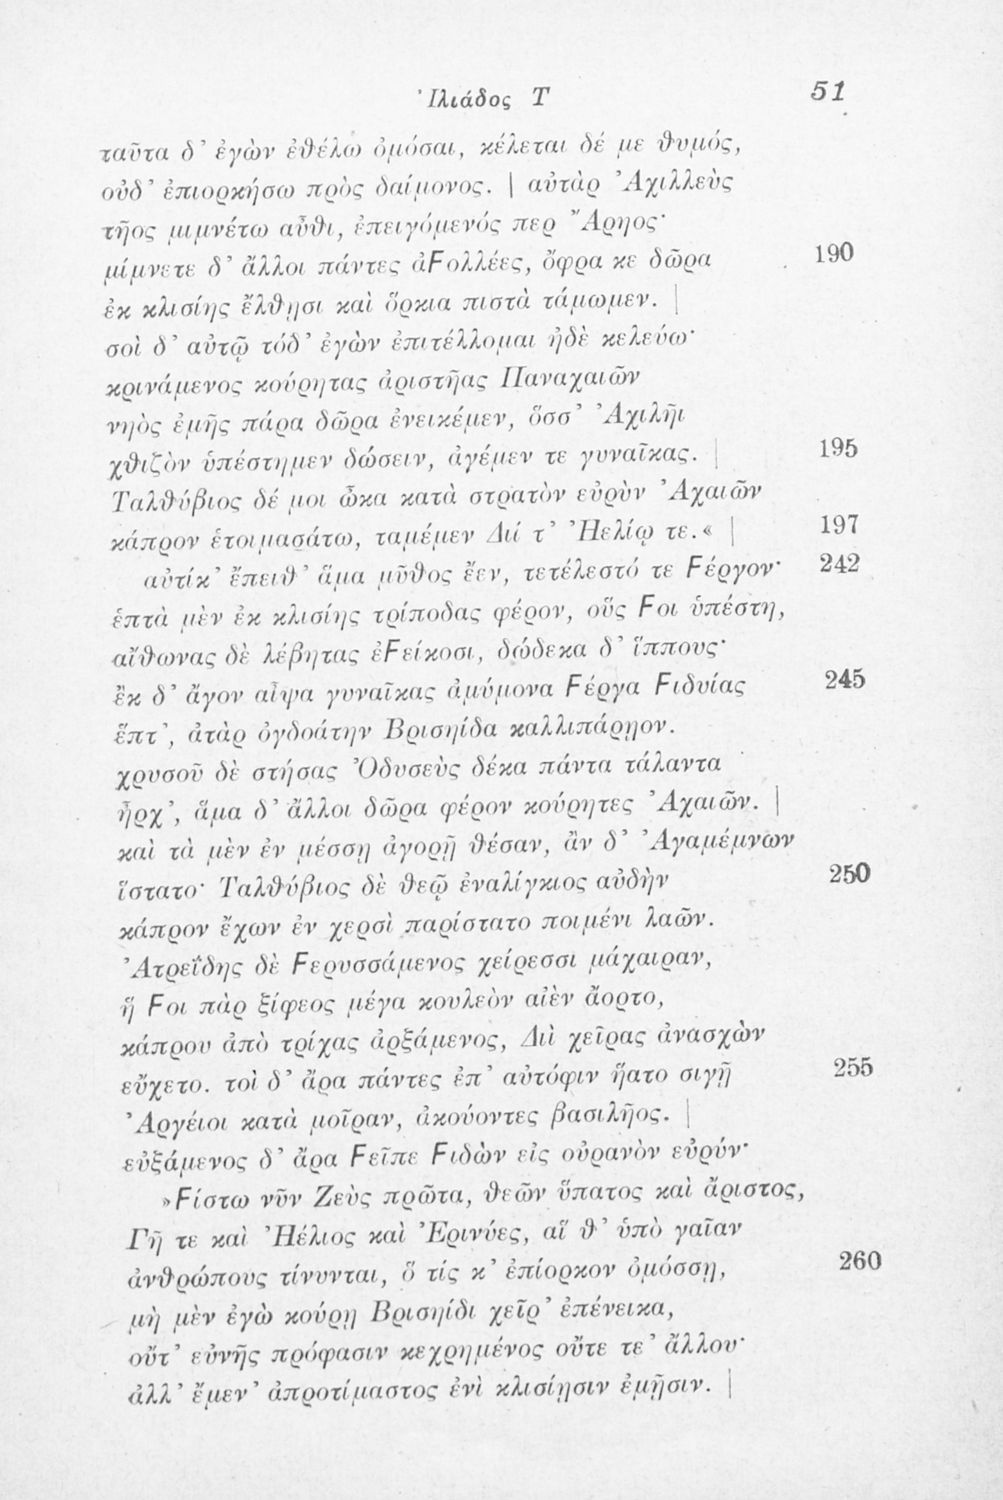 Ἰλιάδος Τ 51
ταῦτα δ' ἐγὼν ἐθέλω ὀμόσαι, κέλεται δέ με θυμός,
οὐδ' ἐπιορκήσω πρὸς δαίμονος. | αὐτὰρ Ἀχιλλεὺς
τῆος μιμνέτω αὖθι, ἐπειγόμενός περ Ἄρηος·
μίμνετε δ' ἄλλοι πάντες ἀϜολλέες, ὄφρα κε δῶρα 190
ἐκ κλισίης ἔλθησι καὶ ὅρκια πιστὰ τάμωμεν. |
σοὶ δ' αὐτῷ τόδ' ἐγὼν ἐπιτέλλομαι ἠδὲ κελεύω·
κρινάμενος κούρητας ἀριστῆας Παναχαιῶν
νηὸς ἐμῆς πάρα δῶρα ἐνεικέμεν, ὅσσ' Ἀχιλῆι
χθιζὸν ὑπέστημεν δώσειν, ἀγέμεν τε γυναῖκας. | 195
Ταλθύβιος δέ μοι ὦκα κατὰ στρατὸν εὐρὺν Ἀχαιῶν
κάπρον ἑτοιμασάτω, ταμέμεν Διί τ' Ἠελίῳ τε.« | 197
αὐτίκ' ἔπειθ' ἅμα μῦθος ἔεν, τετέλεστό τε Ϝέργον· 242
ἑπτὰ μὲν ἐκ κλισίης τρίποδας φέρον, οὕς Ϝοι ὑπέστη,
αἴθωνας δὲ λέβητας ἐϜείκοσι, δώδεκα δ' ἵππους·
ἐκ δ' ἄγον αἶψα γυναῖκας ἀμύμονα Ϝέργα Ϝιδυίας 245
ἕπτ', ἀτὰρ ὀγδοάτην Βρισηίδα καλλιπάρῃον.
χρυσοῦ δὲ στήσας Ὀδυσεὺς δέκα πάντα τάλαντα
ἦρχ', ἅμα δ' ἄλλοι δῶρα φέρον κούρητες Ἀχαιῶν. |
καὶ τὰ μὲν ἐν μέσσῃ ἀγορῇ θέσαν, ἂν δ' Ἀγαμέμνων
ἵστατο· Ταλθύβιος δὲ θεῷ ἐναλίγκιος αὐδὴν 250
κάπρον ἔχων ἐν χερσὶ παρίστατο ποιμένι λαῶν.
Ἀτρεΐδης δὲ Ϝερυσσάμενος χείρεσσι μάχαιραν,
ἥ Ϝοι πὰρ ξίφεος μέγα κουλεὸν αἰὲν ἄορτο,
κάπρου ἀπὸ τρίχας ἀρξάμενος, Διὶ χεῖρας ἀνασχὼν
εὔχετο. τοὶ δ' ἄρα πάντες ἐπ' αὐτόφιν ἥατο σιγῇ 255
Ἀργέιοι κατὰ μοῖραν, ἀκούοντες βασιλῆος. |
εὐξάμενος δ' ἄρα Ϝεῖπε Ϝιδὼν εἰς οὐρανὸν εὐρύν·
»Ϝίστω νῦν Ζεὺς πρῶτα, θεῶν ὕπατος καὶ ἄριστος,
Γῆ τε καὶ Ἠέλιος καὶ Ἐρινύες, αἵ θ' ὑπὸ γαῖαν
ἀνθρώπους τίνυνται, ὅ τίς κ' ἐπίορκον ὀμόσσῃ, 260
μὴ μὲν ἐγὼ κούρῃ Βρισηίδι χεῖρ' ἐπένεικα,
οὔτ' εὐνῆς πρόφασιν κεχρημένος οὔτε τε' ἄλλου·
ἀλλ' ἔμεν' ἀπροτίμαστος ἐνὶ κλισίῃσιν ἐμῇσιν. |